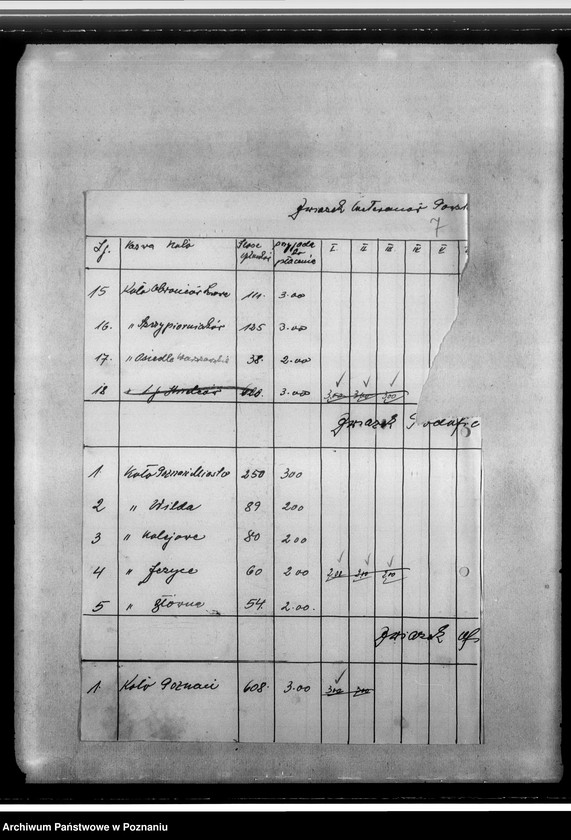 Związek Weteranów Powst
7
Lp. Nazwa Koła Ilość członków przypada do płacenia I II III IV V
15 Koło Obrońców Lwowa 111. 3.00
16. " Szczypiorniaków 125 3.00
17. " Osiedle Warszawskie 38. 2.00
18 3.00 3.00 3.00 3.00
Związek
1 Koło Poznań Miasto 250 300
2 " Wilda 89 200
3 " Kolejowe 80 200
4 " Jeżyce 60 200 2.00 2.00 2.00
5 " Główna 54. 2.00.
Związek
1. Koło Poznań 608. 3.00 3.00
Archiwum Państwowe w Poznaniu